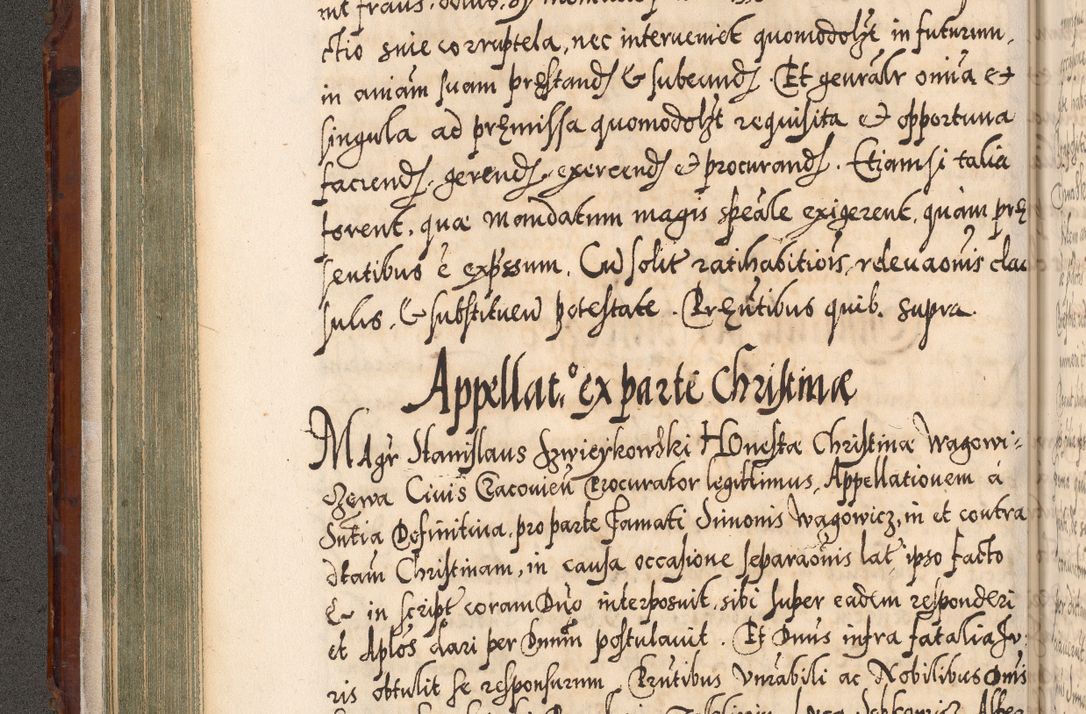 ctio siue corruptela, nec interueniet quomodolzt in futurum,
in aniam suam prestand & subeund. Et genralr omia et
singula ad premissa quomodolzt requisita et opportuna
faciend, gerend, exercend et procurand. Etiamsi talia
forent, quæ mandatum magis speale exigerent, quàm prę
sentibus è expssum. Cu solit ratihabitiois, releuaonis clau
sulis, & substituen potestate. Prętibus quib. supra.
Appellat.º ex parte Christinæ
MAgr Stanislaus Honestæ Christinæ Wagowi-
czewa Ciuis Cracouien Procurator legittimus, Appellationem à
Sntia Definitiua, pro parte Famati Simonis Wagowicz, in et contra
dtam Christinam, in causa occasione separaonis lat ipso facto
& in script coram Dno interposuit, sibi super eadem responderi
et Aplos dari per Dnum postulauit. Et Dnus infra fatalia Iu
ris obtulit se responsurum, Prutibus Vnrabili ac Nobilibus Dnis